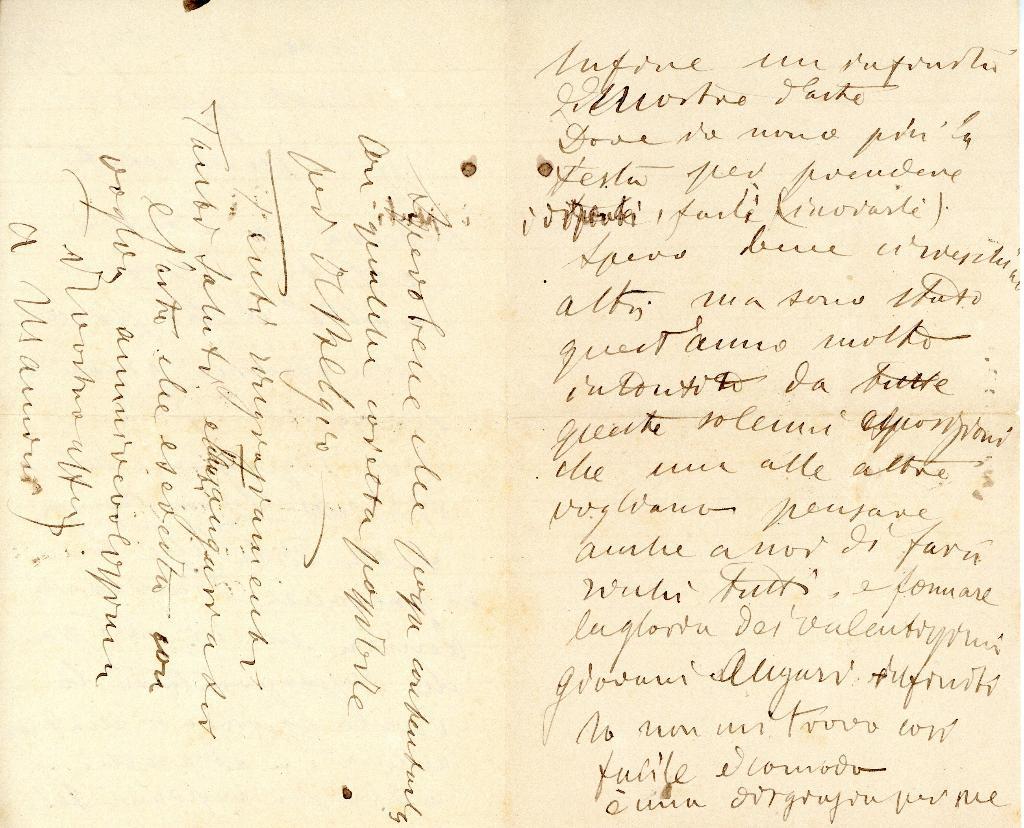 Infine un infinità
Di mostre d'arte
Dove io none più la
testa per prendere
, farli (inviarli).
Spero bene
altri, ma sono stato
quest'anno molto
intontito da tutte
queste solenni esposizioni
che una alle altre
vogliano pensare
anche a noi di farci
ricchi tutti, e formare
la gloria dei valentissimi
giovani Auguri infiniti
Io non mi trovo così
facile e comodo
è una disgrazia per me
Spero bene che poga contentarla
con qualche cosetta possibile
pel di Belgio
Tenti ringraziamenti
Tanti saluti ed auguri a lei
e l'arte che esercita con
voglia ammirevolissima
Vostro aff
A Mancini